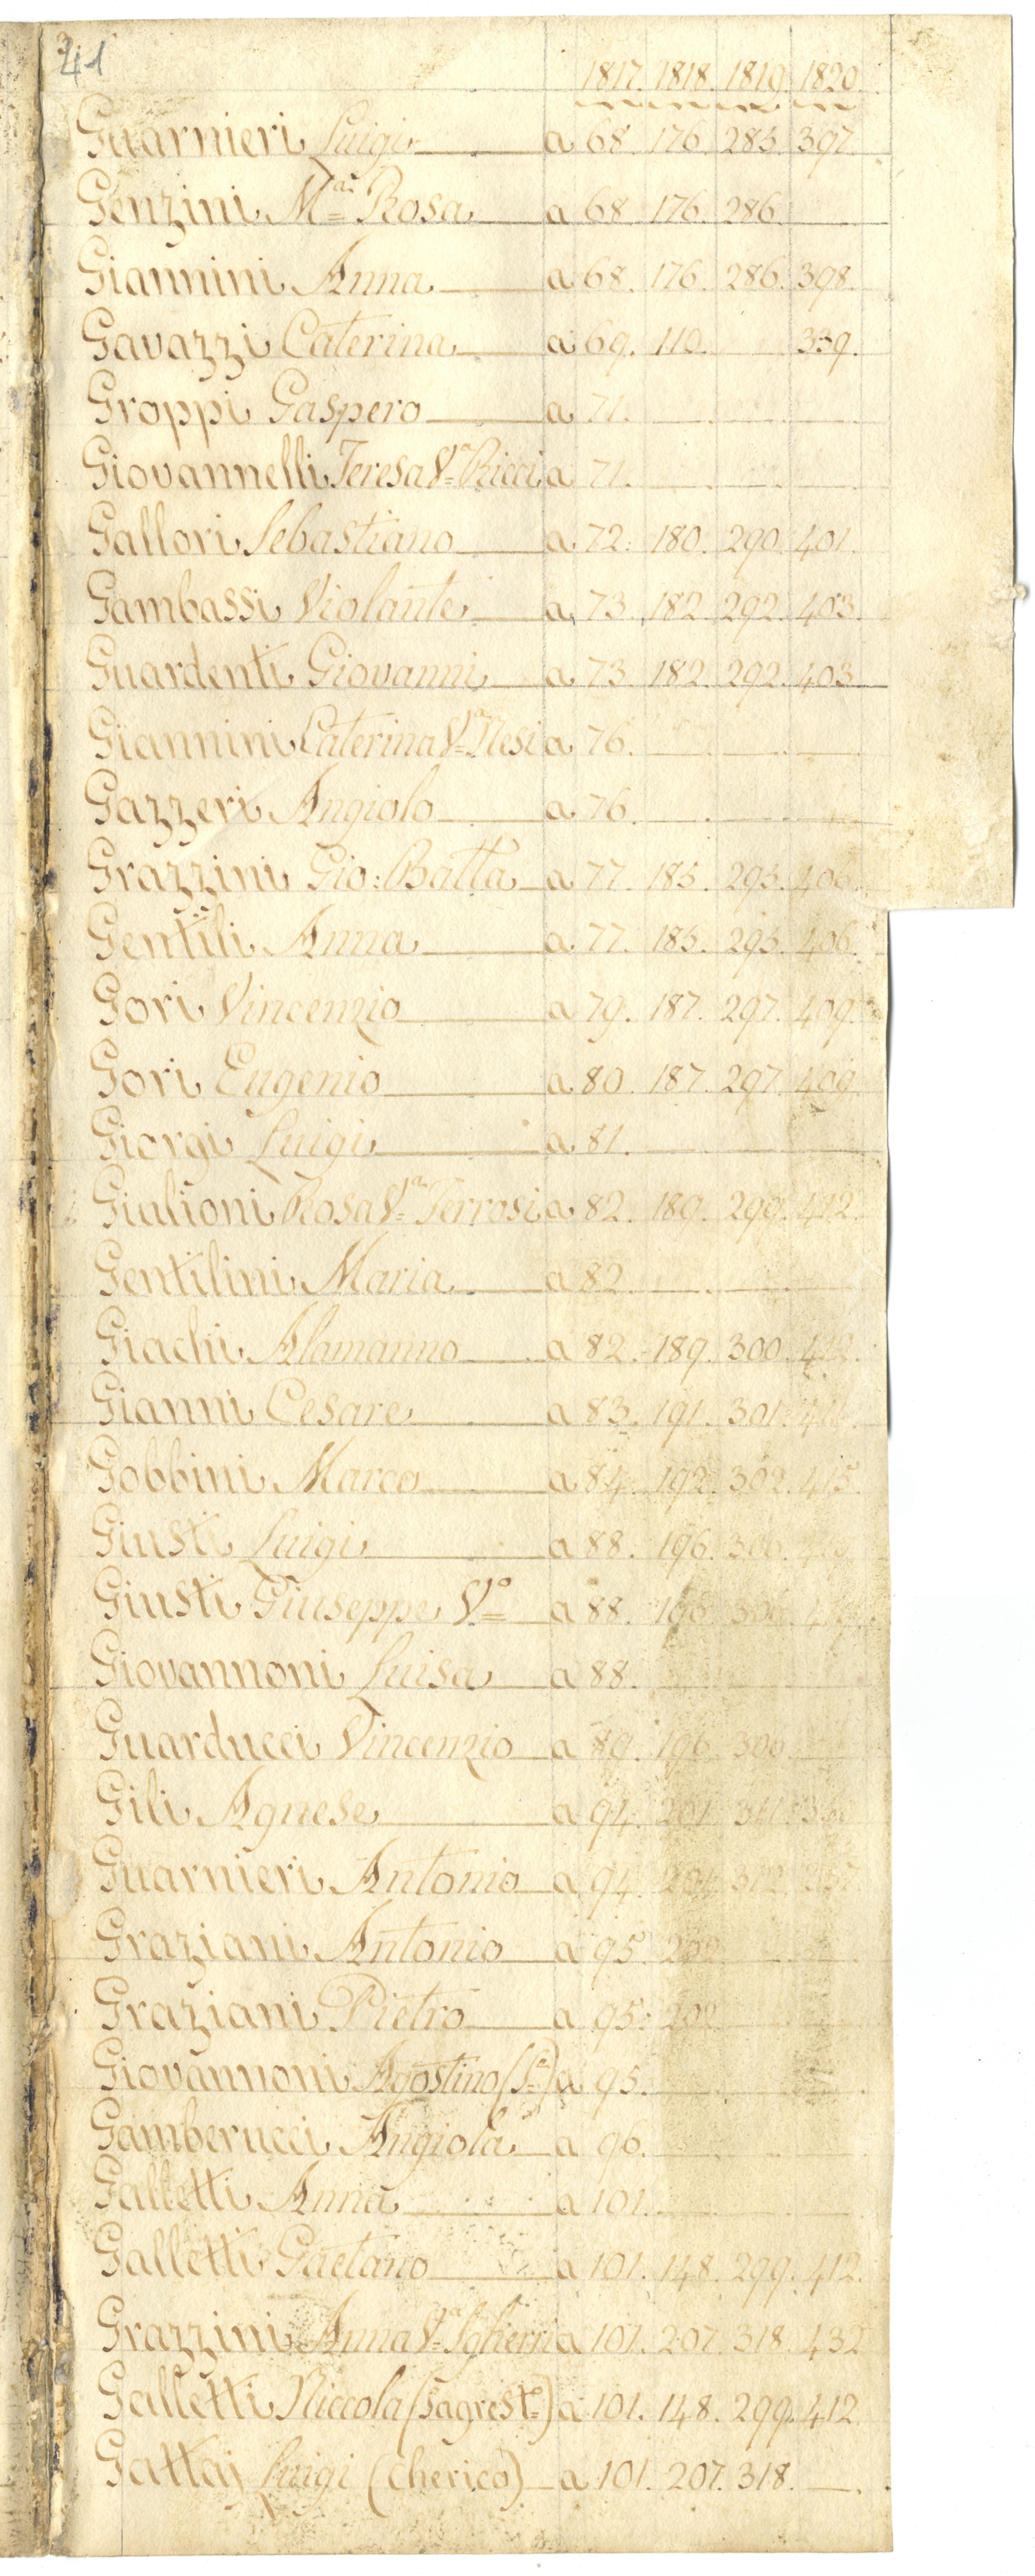 41
1817. 1818. 1819. 1820.
Guarnieri Luigi a 68. 176. 285. 397.
Genzini M.a Rosa a 68. 176. 286.
Giannini Anna a 68. 176. 286. 398.
Gavazzi Caterina a 69. 110. 339.
Groppi Gaspero a 71.
Giovannelli Teresa V.a Ricci a 71.
Gallori Sebastiano a 72. 180. 290. 401.
Gambassi Violante a 73. 182. 292. 403.
Guardenti Giovanni a 73. 182. 292. 403.
Giannini Caterina V.a Nesi a 76.
Gazzeri Angiolo a 76.
Grazzini Gio: Batta a 77. 185. 295. 406.
Gentili Anna a 77. 185. 295. 406.
Gori Vincenzio a 79. 187. 297. 409.
Gori Eugenio a 80. 187. 297. 409.
Giorgi Luigi a 81.
Giulioni Rosa V.a Terrosi a 82. 189. 299. 412.
Gentilini Maria a 82.
Giachi Alamanno a 82. 189. 300. 412.
Gianni Cesare a 83. 191. 301.
Gobbini Marco a 84. 192. 302. 415.
Giusti Luigi a 88. 196. 306.
Giusti Giuseppe V.o a 88. 196. 306.
Giovannoni Luisa a 88.
Guarducci Vincenzio a 89. 196. 306.
Gili Agnese a 94. 201. 311.
Guarnieri Antonio a 94. 312.
Graziani Antonio a 95. 202
Graziani Pietro a 95. 202
Giovannoni Agostino a 95.
Gamberucci Angiola a 96.
Galletti Anna a 101.
Galletti Gaetano a 101. 148. 299. 412.
Grazzini Anna V.a Sgheri a 101. 207. 318. 432
Galletti Niccola (Sagrest.o) a 101. 148. 299. 412
Gattai Luigi (Cherico) a 101. 207. 318.